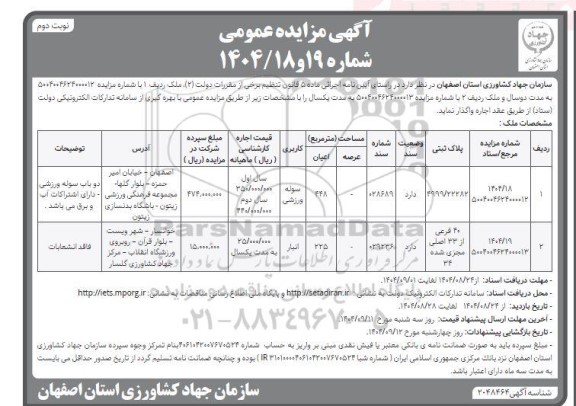 نوبت دوم
آگهی مزایده عمومی
شماره ۱۹و۱۴۰۴/۱۸
جهاد کشاورزی
سازمان جهاد کشاورزی استان اصفهان در نظر دارد در راستای آیین نامه اجرائی ماده ۵ قانون تنظیم برخی از مقررات دولت (۲)، ملک ردیف ۱ با شماره مزایده ۵۰۰۴۰۰۴۶۲۴۰۰۰۰۱۲
به مدت دوسال و ملک ردیف ۲ با شماره مزایده ۵۰۰۴۰۰۴۶۲۴۰۰۰۰۱۳ به مدت یکسال را با مشخصات زیر از طریق مزایده عمومی با بهره گیری از سامانه تدارکات الکترونیکی دولت
(ستاد) از طریق عقد اجاره واگذار نماید.
مشخصات ملک:
ردیف شماره مزایده مرجع/ستاد پلاک ثبتی وضعیت سند شماره سند مساحت(مترمربع) عرصه اعیان کاربری قیمت اجاره کارشناسی (ریال) ماهیانه مبلغ سپرده شرکت در مزایده (ریال) آدرس توضیحات
۱ ۱۴۰۴/۱۸ ۵۰۰۴۰۰۴۶۲۴۰۰۰۰۱۲ ۴۹۹۹/۲۲۲۸۲ دارد ۰۲۸۶۸۹ - ۴۴۸ سوله ورزشی سال اول ۳۵۰/۰۰۰/۰۰۰ سال دوم ۴۴۰/۰۰۰/۰۰۰ ۴۷۴.۰۰۰.۰۰۰ اصفهان – خیابان امیر حمزه – بلوار گلها- مجموعه فرهنگی ورزشی زیتون - باشگاه بدنسازی زیتون دو باب سوله ورزشی - دارای اشتراکات آب و برق می باشد.
۲ ۱۴۰۴/۱۹ ۵۰۰۴۰۰۴۶۲۴۰۰۰۰۱۳ ۴۰ فرعی از ۳۳ اصلی مجزی شده ۳۴ دارد ۰۲۹۲۳۶ - ۲۲۵ انبار ۲۵/۰۰۰/۰۰۰ به مدت یکسال ۱۵.۰۰۰.۰۰۰ خوانسار – شهر ویست – بلوار قرآن – روبروی ورزشگاه انقلاب – مرکز جهاد کشاورزی گلسار فاقد انشعابات
- مهلت دریافت اسناد: از ۱۴۰۴/۰۸/۲۴ لغایت ۱۴۰۴/۰۹/۰۱.
- محل دریافت اسناد: سامانه تدارکات الکترونیک دولت به نشانی: http://setadiran.ir و پایگاه ملی اطلاع رسانی مناقصات به نشانی: http://iets.mporg.ir.
- تاریخ بازدید: از ۱۴۰۴/۰۸/۲۴ لغایت ۱۴۰۴/۰۸/۲۸.
- آخرین مهلت ارسال پیشنهاد قیمت: روز سه شنبه مورخ ۱۴۰۴/۰۹/۱۱.
- تاریخ بازگشایی پیشنهادات: روز چهارشنبه مورخ ۱۴۰۴/۰۹/۱۲.
- مبلغ سپرده باید به صورت ضمانت نامه ی بانکی معتبر یا فیش نقدی مبنی بر واریز به حساب شماره ۴۰۶۱۰۴۲۰۰۷۶۷۰۵۲۴ بنام تمرکز وجوه سپرده سازمان جهاد کشاورزی
استان اصفهان نزد بانک مرکزی جمهوری اسلامی ایران بوده و چنانچه ضمانت نامه تسلیم گردد از تاریخ صدور حداقل می بایست
به مدت سه ماه دارای اعتبار باشد.
شناسه آگهی ۲۰۴۸۴۶۴
سازمان جهاد کشاورزی استان اصفهان
ParsNamadData
۰۲۱-۸۸۳۴۹۶۷۰